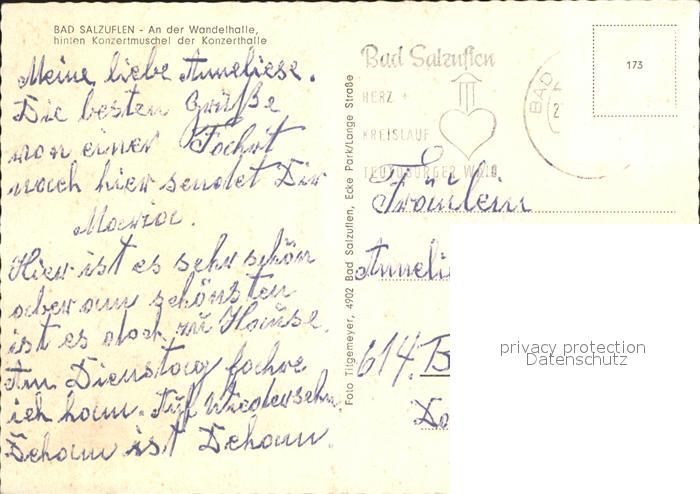 BAD SALZUFLEN - An der Wandelhalle,
hinten Konzertmuschel der Konzerthalle
Meine liebe Anneliese.
Die besten Grüße
von einer Fahrt
nach hier sendet Dir
Maria.
Hier ist es sehr schön
aber am schönsten
ist es doch zu Hause.
Am Dienstag fahre
ich ham. Auf Wiedersehn.
Deham ist Deham.
Foto Tilgemeyer, 4902 Bad Salzuflen, Ecke Park/Lange Straße
Bad Salzuflen
HERZ +
KREISLAUF
TEUTOBURGER WALD
BAD
173
Fräulein
Anneli
614. B
privacy protection
Datenschutz